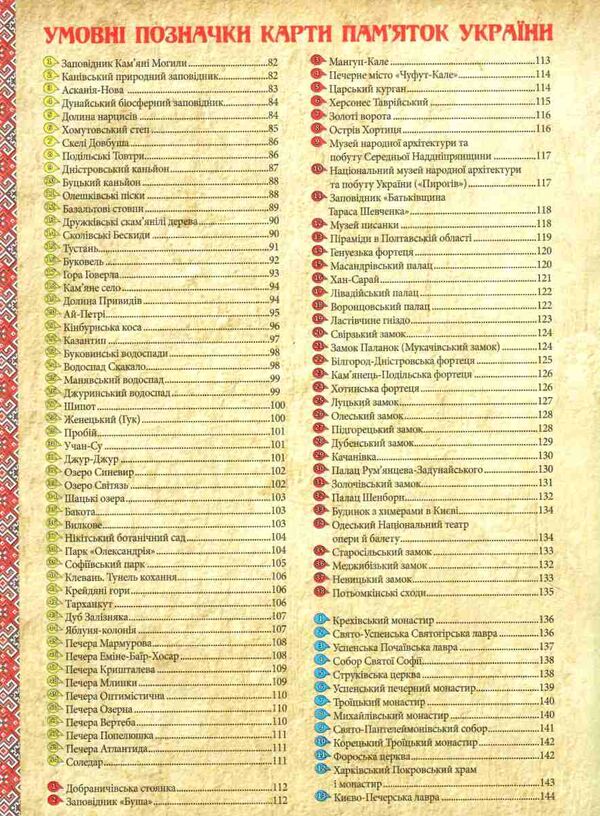 УМОВНІ ПОЗНАЧКИ КАРТИ ПАМ'ЯТОК УКРАЇНИ
Заповідник Кам'яні Могили 82
Канівський природний заповідник 82
Асканія-Нова 83
Дунайський біосферний заповідник 84
Долина нарцисів 84
Хомутовський степ 85
Скелі Довбуша 86
Подільські Товтри 86
Дністровський каньйон 87
Буцький каньйон 88
Олешківські піски 88
Базальтові стовпи 89
Дружківські скам'янілі дерева 90
Сколівські Бескиди 90
Тустань 91
Буковель 92
Гора Говерла 93
Кам'яне село 94
Долина Привидів 94
Ай-Петрі 95
Кінбурнська коса 96
Казантип 97
Буковинські водоспади 98
Водоспад Скакало 98
Манявський водоспад 99
Джуринський водоспад 99
Шипот 100
Женецький (Гук) 100
Пробій 101
Учан-Су 101
Джур-Джур 101
Озеро Синевир 102
Озеро Світязь 102
Шацькі озера 103
Бакота 103
Вилкове 103
Нікітський ботанічний сад 104
Парк «Олександрія» 104
Софіївський парк 105
Клевань. Тунель кохання 106
Крейдяні гори 106
Тарханкут 106
Дуб Залізняка 107
Яблуня-колонія 107
Печера Мармурова 108
Печера Еміне-Баїр-Хосар 108
Печера Кришталева 109
Печера Млинки 109
Печера Оптимістична 110
Печера Озерна 110
Печера Вертеба 110
Печера Попелюшка 111
Печера Атлантида 111
Соледар 111
1 Добраничівська стоянка 112
2 Заповідник «Буша» 112
3 Мангуп-Кале 113
4 Печерне місто «Чуфут-Кале» 114
5 Царський курган 114
6 Херсонес Таврійський 115
7 Золоті ворота 116
8 Острів Хортиця 116
9 Музей народної архітектури та
побуту Середньої Наддніпрянщини 117
10 Національний музей народної архітектури
та побуту України («Пирогів») 117
11 Заповідник «Батьківщина
Тараса Шевченка» 118
12 Музей писанки 118
13 Піраміди в Полтавській області 119
14 Генуезька фортеця 120
15 Масандрівський палац 120
16 Хан-Сарай 121
17 Лівадійський палац 122
18 Воронцовський палац 122
19 Ластівчине гніздо 123
20 Свірзький замок 124
21 Замок Паланок (Мукачівський замок) 124
22 Білгород-Дністровська фортеця 125
23 Кам'янець-Подільська фортеця 126
Хотинська фортеця 126
Луцький замок 127
Олеський замок 128
Підгорецький замок 128
Дубенський замок 129
Качанівка 130
30 Палац Рум'янцева-Задунайського 130
31 Золочівський замок 131
32 Палац Шенборн 132
33 Будинок з химерами в Києві 134
Одеський Національний театр
опери й балету 134
35 Старосільський замок 133
36 Меджибізький замок 133
37 Невицький замок 133
38 Потьомкінські сходи 135
1 Крехівський монастир 136
2 Свято-Успенська Святогірська лавра 136
3 Успенська Почаївська лавра 137
4 Собор Святої Софії 138
5 Струківська церква 138
6 Успенський печерний монастир 139
7 Троїцький монастир 140
8 Михайлівський монастир 140
9 Свято-Пантелеймонівський собор 141
10 Корецький Троїцький монастир 142
11 Фороська церква 142
12 Харківський Покровський храм
і монастир 143
13 Києво-Печерська лавра 144